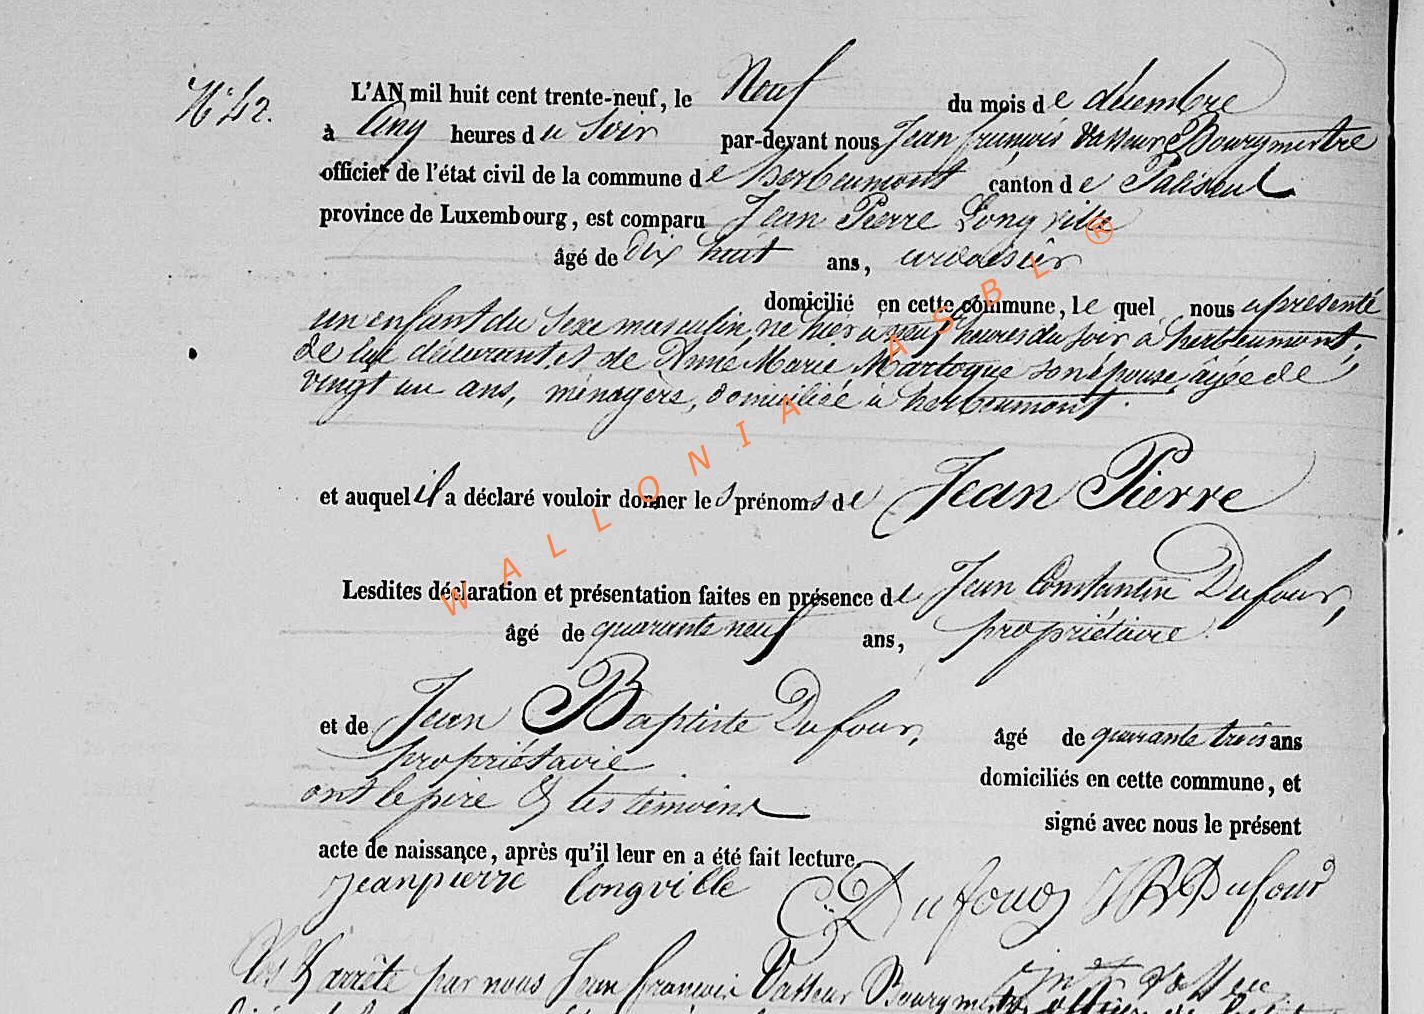 N° 42.
L'AN mil huit cent trente-neuf, le Neuf du mois de décembre
à Cinq heures du Soir par-devant nous Jean françois Vasseur Bourgmestre
officier de l'état civil de la commune de herbeumont canton de Paliseul
province de Luxembourg, est comparu Jean Pierre Longville
âgé de dix huit ans, ardoisier
domicilié en cette commune, le quel nous a présenté
un enfant du Sexe masculin, né hier à neuf heures du soir à herbeumont,
de lui déclarant et de Anne Marie Martoque son épouse, âgée de
vingt un ans, ménagère, domiciliée à herbeumont.
et auquel il a déclaré vouloir donner les prénoms de Jean Pierre
Lesdites déclaration et présentation faites en présence de Jean Constantin Dufour,
âgé de quarante neuf ans, propriétaire
et de Jean Baptiste Dufour, âgé de quarante trois ans
propriétaire domiciliés en cette commune, et
ont le père & les témoins signé avec nous le présent
acte de naissance, après qu'il leur en a été fait lecture.
jeanpierre longville C: Dufour JB Dufour
Clos & arrêté par nous Jean françois Vasseur Bourgmestre officier de
WALLONIA ASBL ®